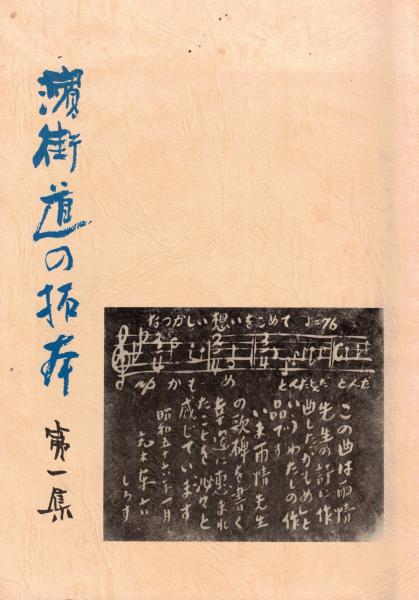 濱街道の拓本
第一集
なつかしい想いをこめて ♩=76
mp かもめ
とんだとんだ とんだ
この曲は雨情
先生の詩に作
曲したかもめと
いうわたしの作
品です
いま雨情先生
の歌碑を書く
幸運に恵まれ
たことを沁々と
感じています
昭和五十六年一月
しるす